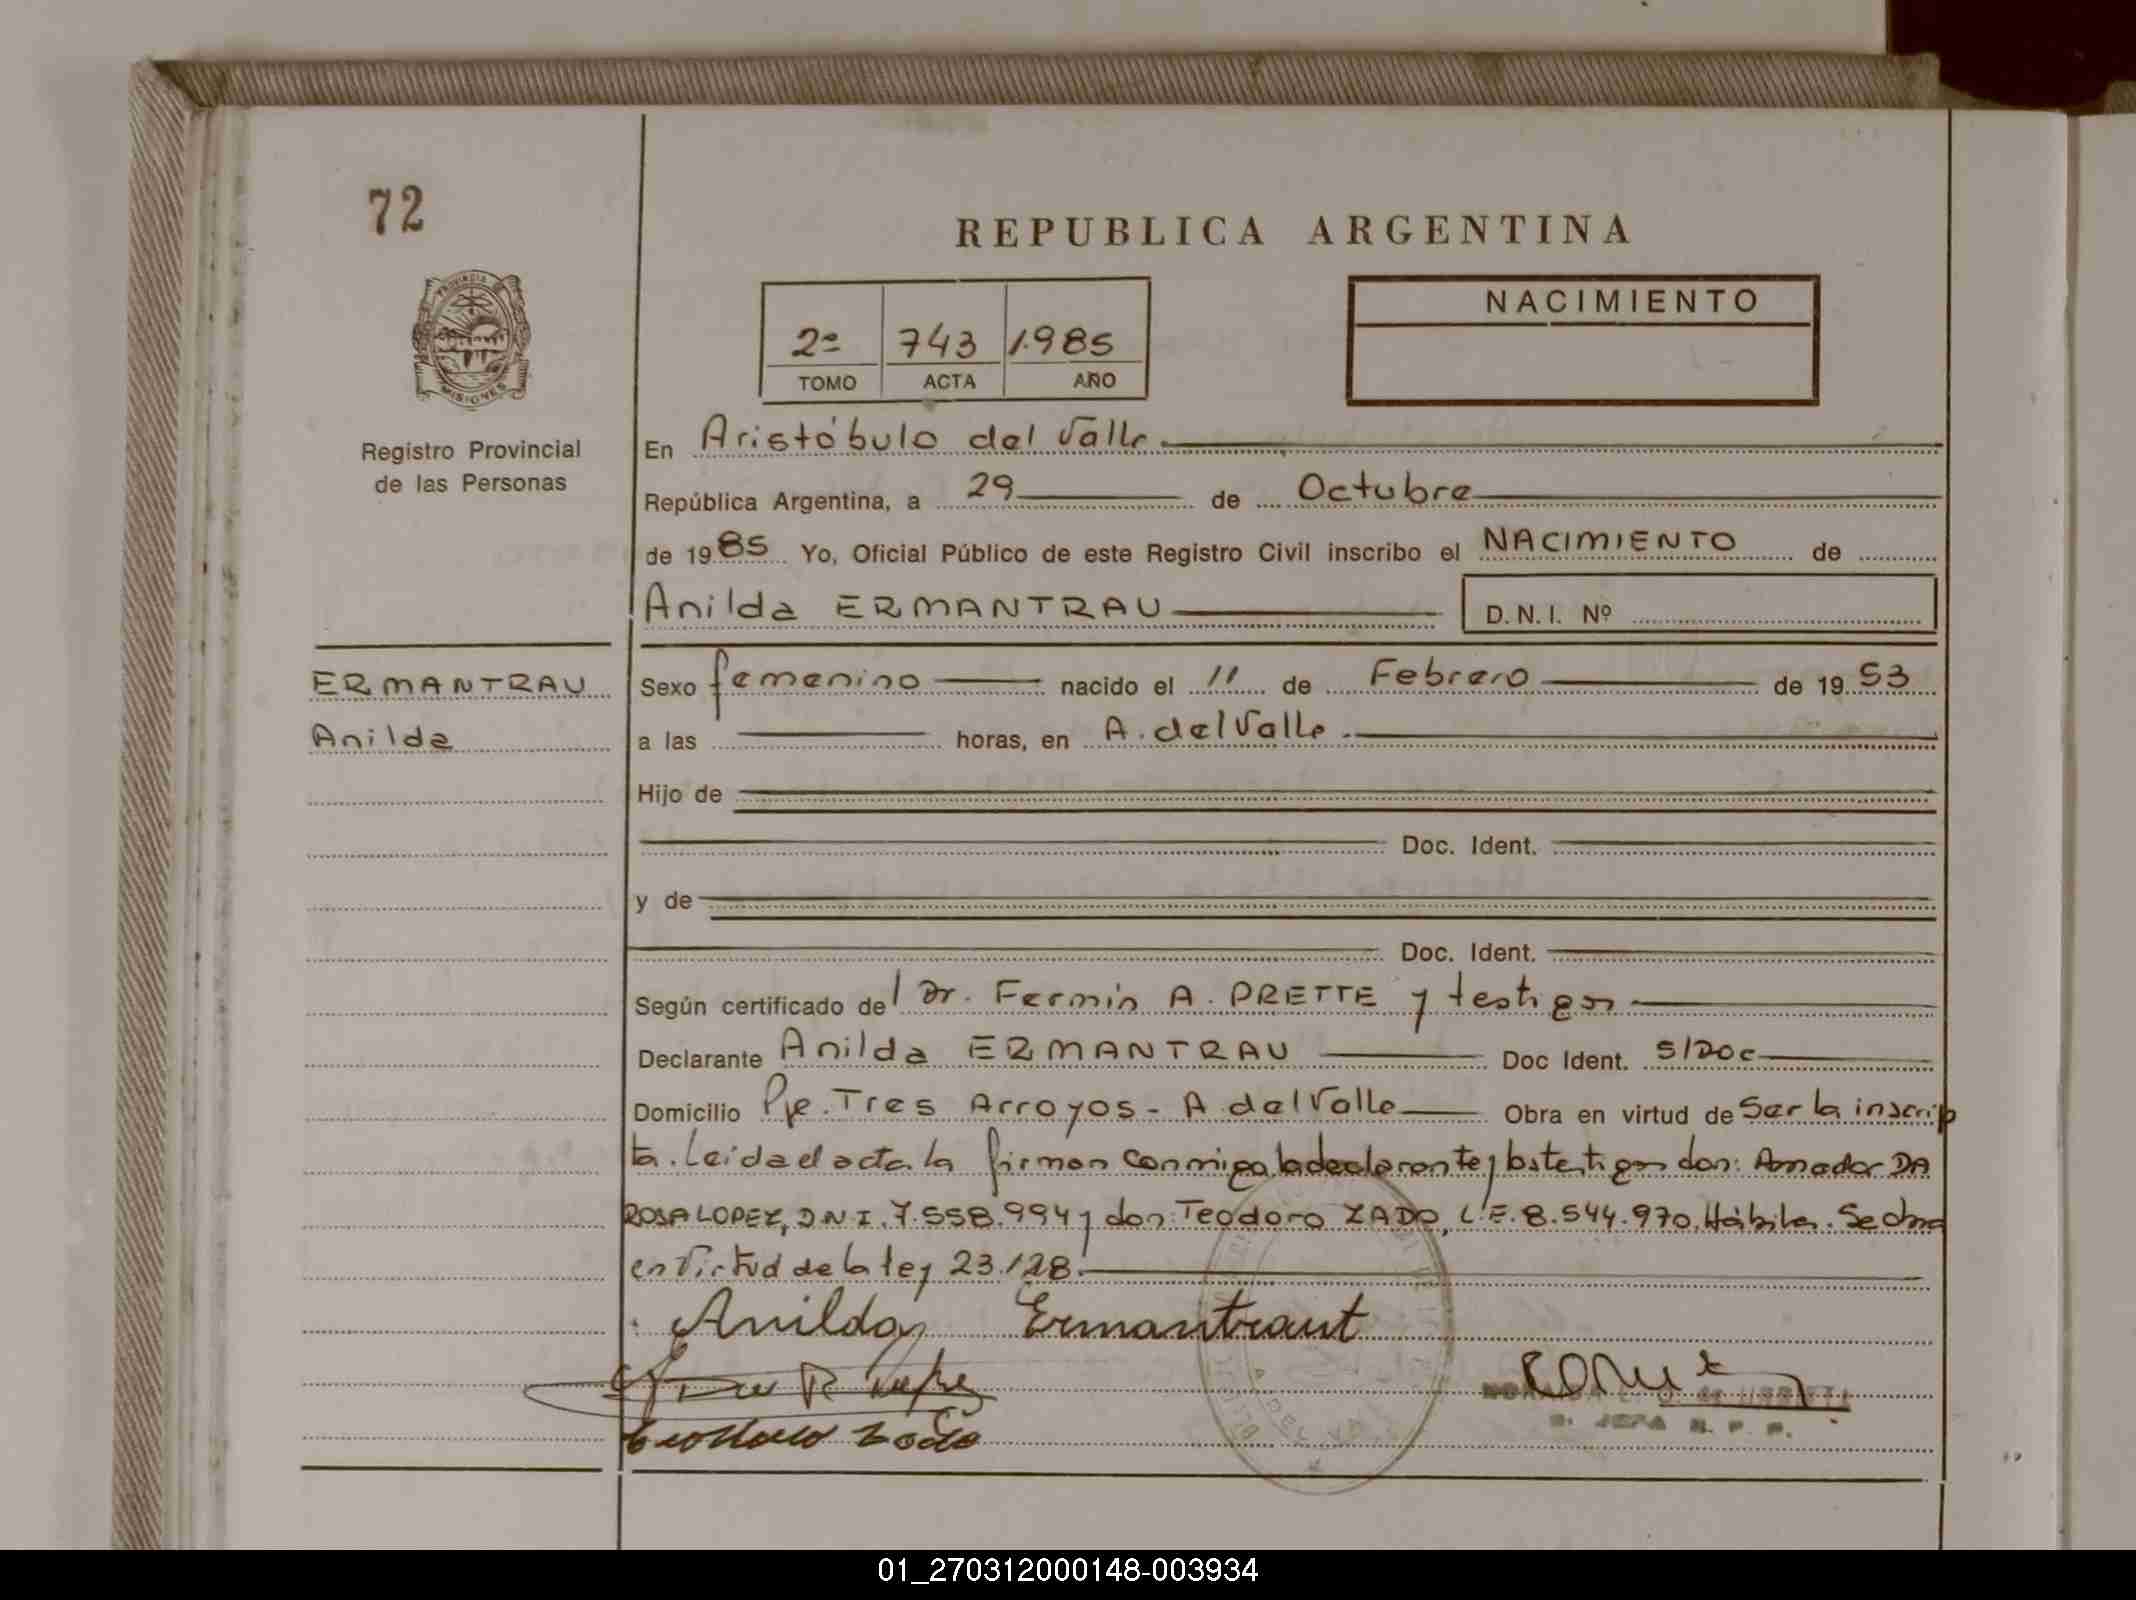 72
REPUBLICA ARGENTINA
PROVINCIA DE
MISIONES
NACIMIENTO
2ª 743 1.985
TOMO ACTA AÑO
Registro Provincial
de las Personas
En Aristóbulo del Valle
República Argentina, a 29 de Octubre
de 1985 Yo, Oficial Público de este Registro Civil inscribo el NACIMIENTO de
Anilda ERMANTRAU D.N.I. Nº
ERMANTRAU
Anilda
Sexo femenino nacido el 11 de Febrero de 1953
a las horas, en A. del Valle
Hijo de
Doc. Ident.
y de
Doc. Ident.
Según certificado del Dr. Fermín A. PRETTE y testigos
Declarante Anilda ERMANTRAU Doc Ident. S/Doc
Domicilio Pje. Tres Arroyos - A. del Valle Obra en virtud de Ser la inscrip
ta. Leida el acta la firman conmigo la declarante y los testigos don: Amador DA
ROSA LOPEZ, D.N.I. 7.558.994 y don: Teodoro ZADO, L.E. 8.544.970. Hábiles. Se
en virtud de la ley 23.128.
Anilda Ermantraut
Teodoro Zado
JEFA R. P. P.
01_270312000148-003934